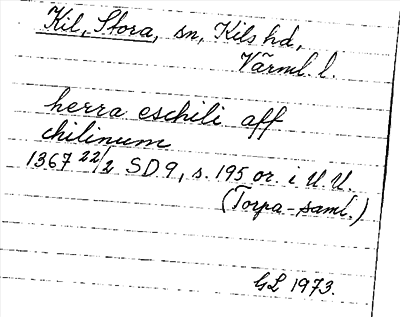 Kil, Stora, sn, Kils hd,
Värml. l.
herra eschili aff
chilinum
1367 22/2 SD 9, s. 195 or. i U.U.
(Torpa-saml.)
GL 1973.